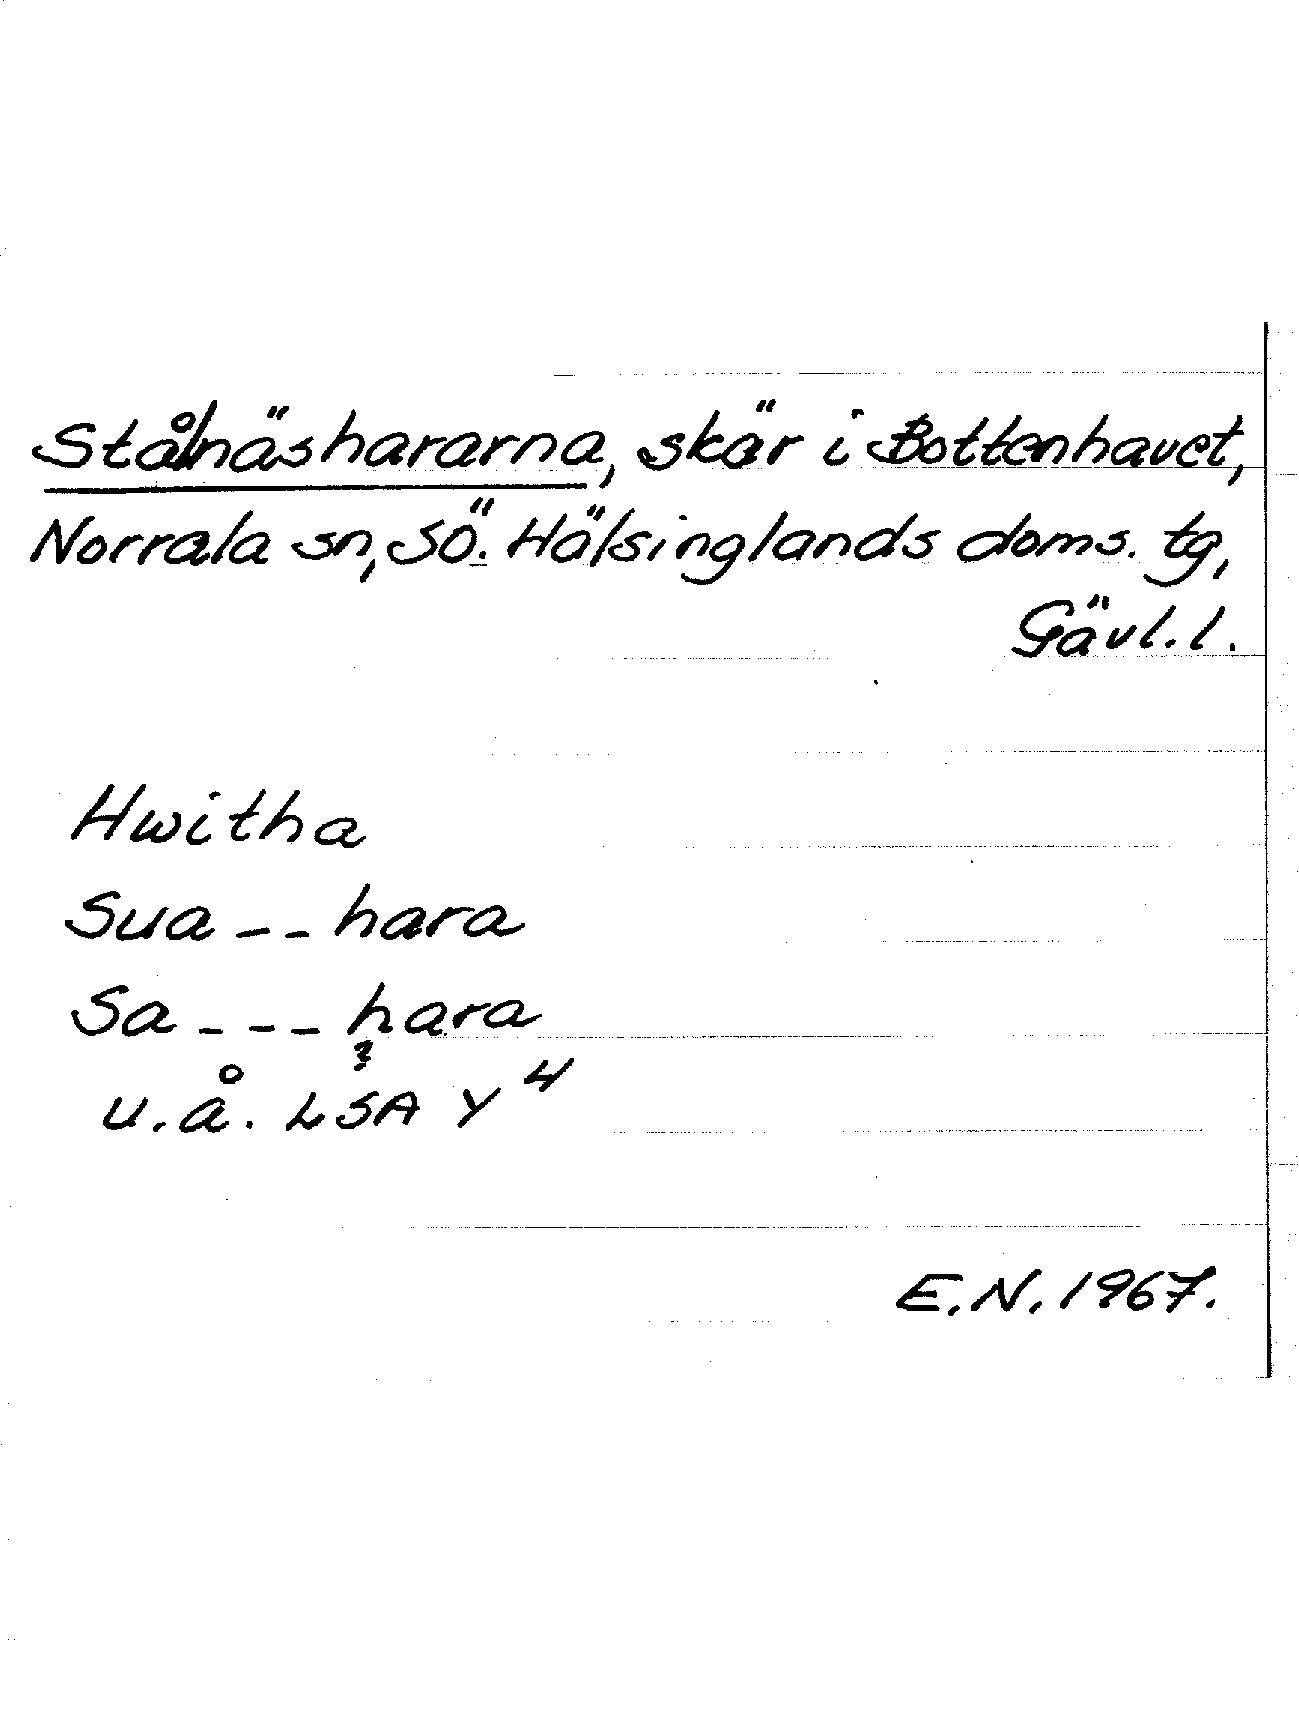 Stålnäshararna, skär i Bottenhavet,
Norrala sn, SÖ. Hälsinglands doms. tg,
Gävl. l.
Hwitha
Sua -- hara
Sa --- hara
?
u.å. LSA Y 4
E.N. 1967.